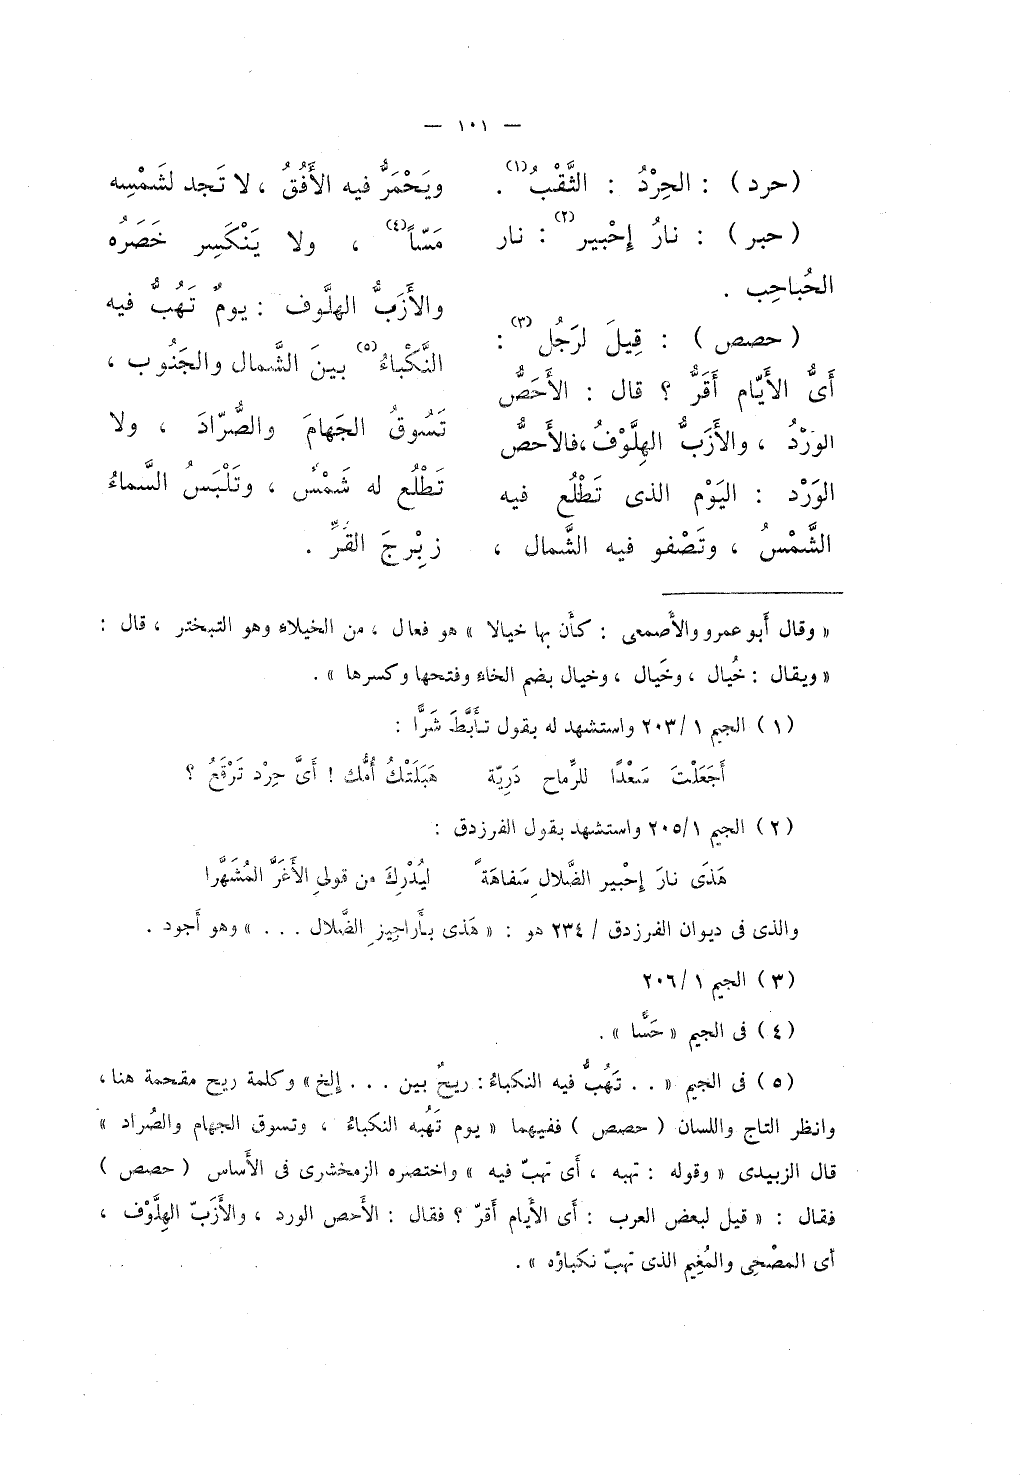 — ١٠١ —
(حرد) : الحِرْدُ : الثَّقْبُ(١) .
(حبر) : نارُ إِحْبير(٢) : نار
الحُباحِب .
(حصص) : قِيلَ لرَجُل(٣) :
أَىُّ الأَيّام أَقَرُّ ؟ قال : الأَحَصُّ
الوَرْدُ ، والأَزَبُّ الهِلَّوْفُ، فالأَحصُّ
الوَرْد : اليَوْم الذى تَطْلُع فيه
الشَّمْسُ ، وتَصْفو فيه الشَّمال ،
ويَحْمَرُّ فيه الأُفُقُ ، لا تَجد لشَمْسِه
مَسّاً(٤) ، ولا يَنْكَسِر خَصَرُه
والأَزَبُّ الهلَّوف : يومٌ تَهُبُّ فيه
النَّكْباءُ(٥) بينَ الشَّمال والجَنُوب ،
تَسُوقُ الجَهامَ والصُّرّادَ ، ولا
تَطْلُع له شَمْسٌ ، وتَلْبَسُ السَّماءُ
زبْرِجَ القُرِّ .
« وقال أَبو عمرو والأَصمعى : كأَن بها خيالا » هو فعال ، من الخيلاء وهو التبختر ، قال :
« ويقال : خُيال ، وخَيال ، وخيال بضم الخاء وفتحها وكسرها » .
(١) الجيم ٢٠٣/١ واستشهد له بقول تأَبَّطَ شَرًّا :
أَجَعَلْتَ سَعْدًا للرِّماح دَرِيّة هَبَلَتْكَ أُمُّك ! أَىَّ حِرْد تَرْقَعُ ؟
(٢) الجيم ٢٠٥/١ واستشهد بقول الفرزدق :
هَذَى نارَ إِحْبير الضَّلالِ سَفاهَةً ليُدْرِكَ من قولى الأَغَرَّ المُشَهَّرا
والذى فى ديوان الفرزدق / ٢٣٤ هو : « هَذى بأَراجيز الضَّلال . . . » وهو أَجود .
(٣) الجيم ٢٠٦/١
(٤) فى الجيم « حَسًّا » .
(٥) فى الجيم « . . تَهُبُّ فيه النكباءُ : ريحٌ بين . . . إلخ» وكلمة ريح مقحمة هنا،
وانظر التاج واللسان ( حصص ) ففيهما « يوم تَهُبه النكباءُ ، وتسوق الجهام والصُراد »
قال الزبيدى « وقوله : تهبه ، أَى تهبّ فيه » واختصره الزمخشرى فى الأَساس ( حصص )
فقال : « قيل لبعض العرب : أَى الأَيام أَقرّ ؟ فقال : الأَحص الورد ، والأَزَبّ الهِلَّوْف ،
أَى المصْحِى والمُغِيم الذى تهبّ نكباؤه » .